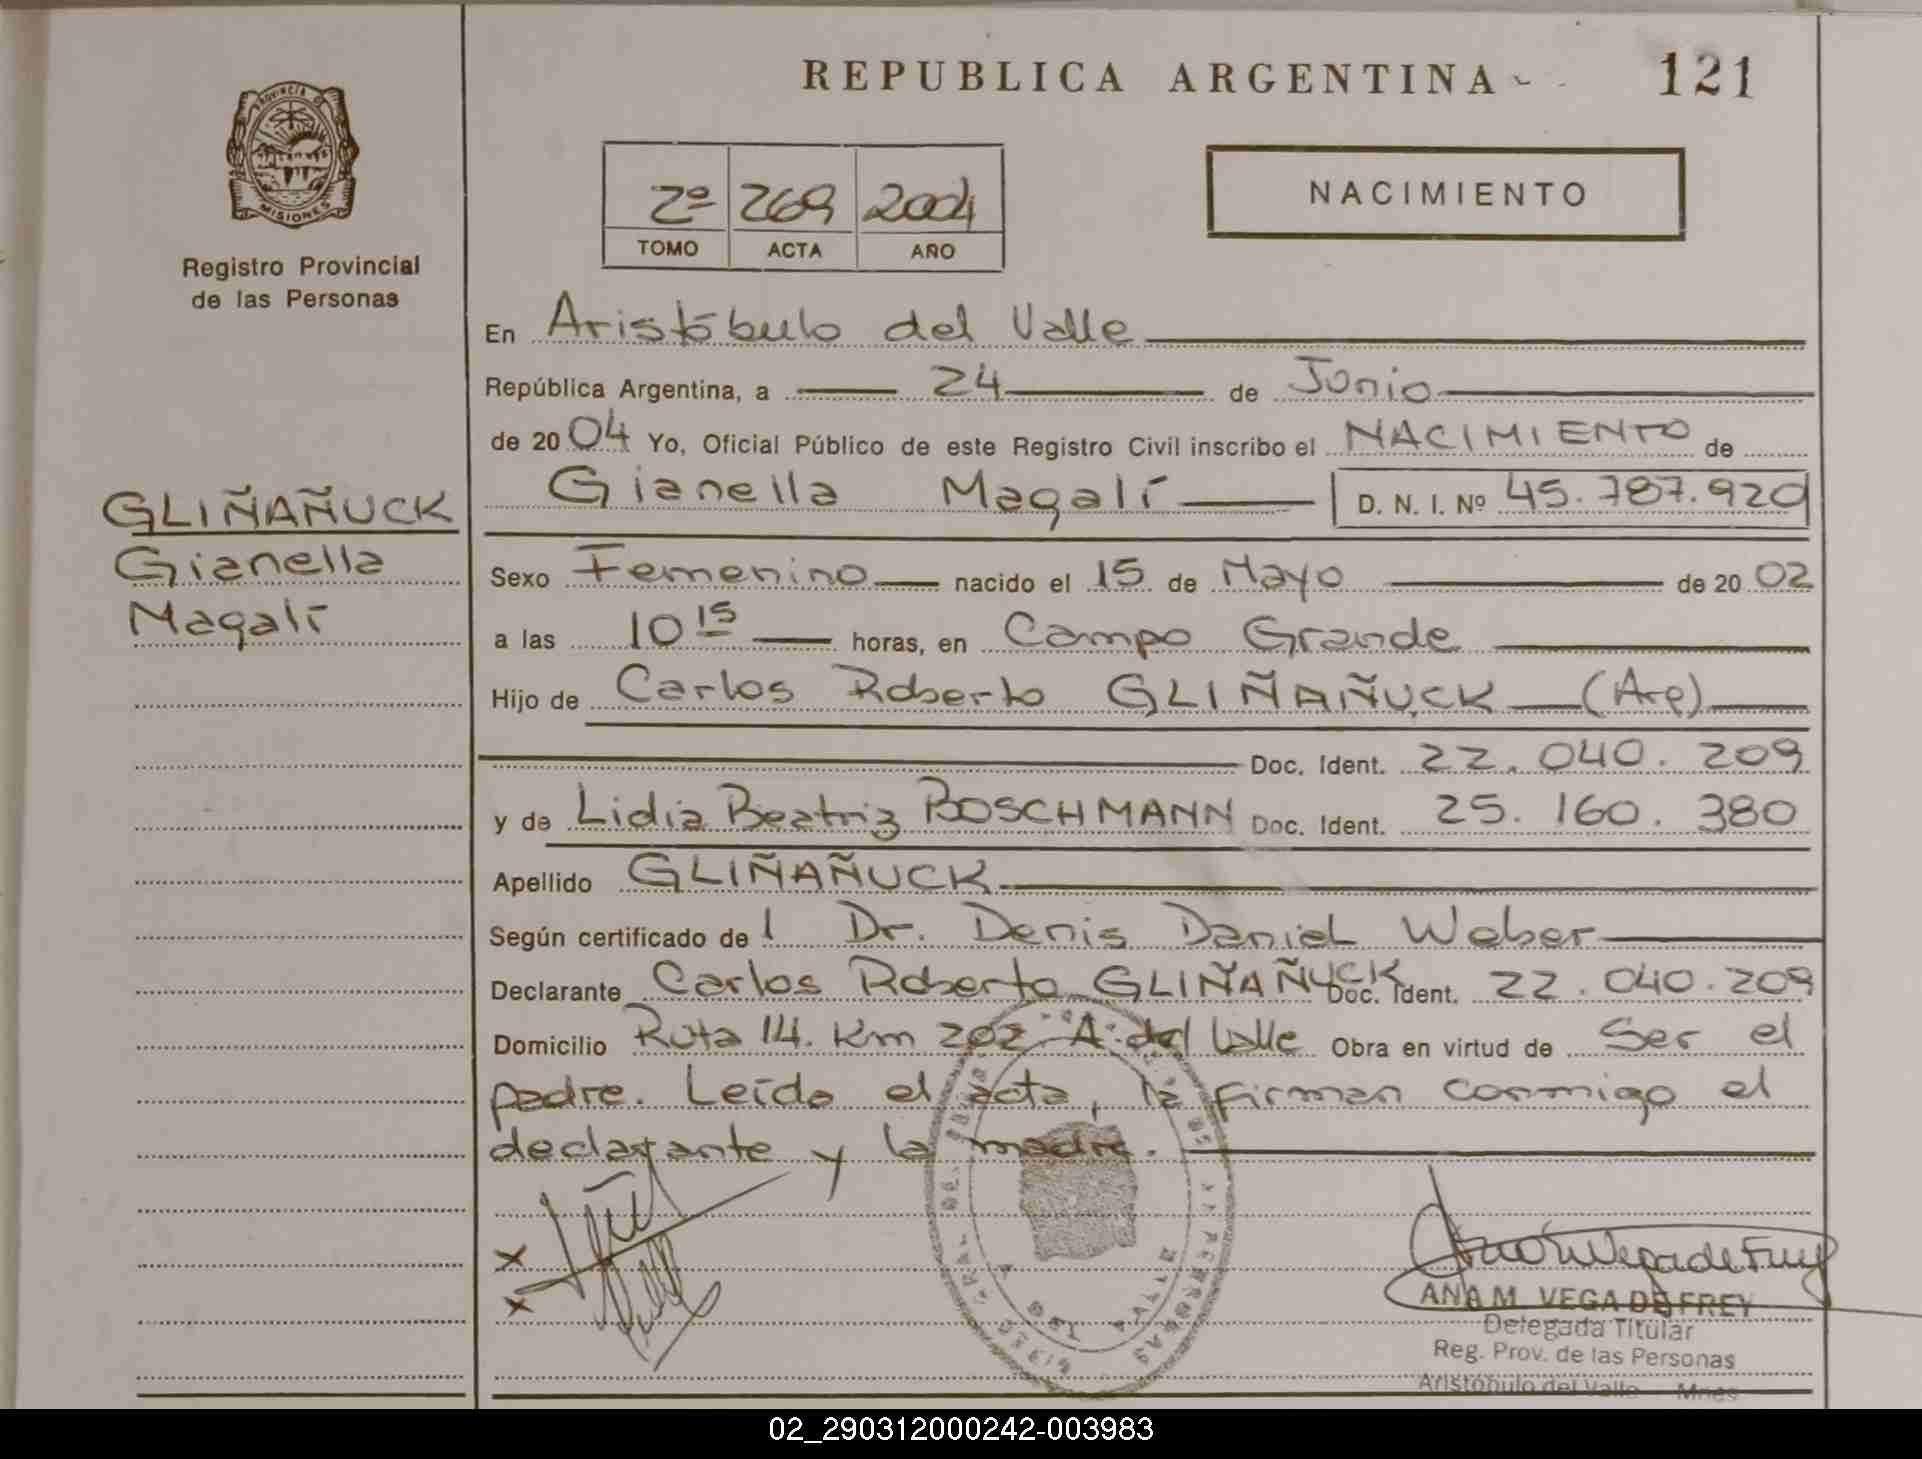 REPUBLICA ARGENTINA
121
PROVINCIA DE
MISIONES
Registro Provincial
de las Personas
2º 269 2004
TOMO ACTA AÑO
NACIMIENTO
GLIÑAÑUCK
Gianella
Magalí
En Aristóbulo del Valle
República Argentina, a 24 de Junio
de 2004 Yo, Oficial Público de este Registro Civil inscribo el NACIMIENTO de
Gianella Magalí D. N. I. Nº 45.787.920
Sexo Femenino nacido el 15 de Mayo de 2002
a las 10 15 horas, en Campo Grande
Hijo de Carlos Roberto GLIÑAÑUCK (Arg)
Doc. Ident. 22.040.209
y de Lidia Beatriz BOSCHMANN Doc. Ident. 25.160.380
Apellido GLIÑAÑUCK
Según certificado de l Dr. Denis Daniel Weber
Declarante Carlos Roberto GLIÑAÑUCK Doc. Ident. 22.040.209
Domicilio Ruta 14. Km 202 A. del Valle Obra en virtud de Ser el
padre. Leída el acta, la firman conmigo el
declarante y la madre.
x
x
ANA M. VEGA DE FREY
Delegada Titular
Reg. Prov. de las Personas
Aristóbulo del Valle - Mnes
02_290312000242-003983